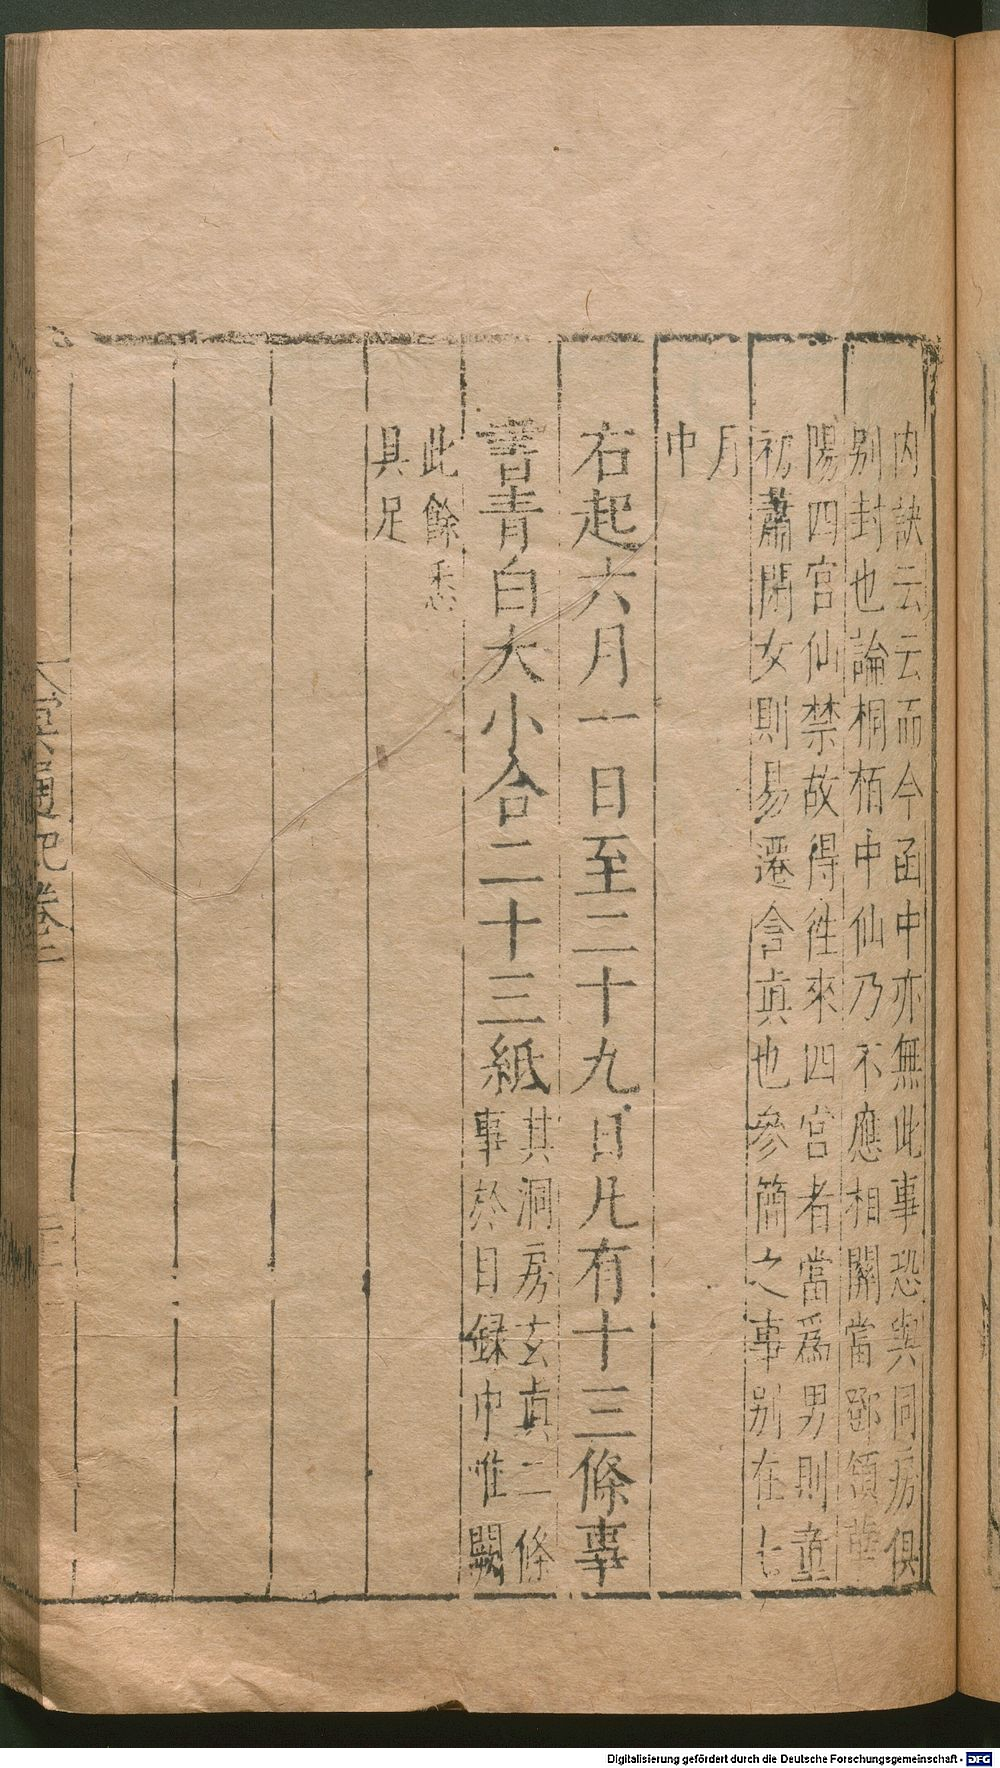 內訣云云而今函中亦無此事恐與同房俱
別封也論桐栢中仙乃不應相關當邵領華
陽四宮仙禁故得徃來四宮者當爲男則童
初蕭閑女則易遷含真也參簡之事別在七
月
中
右起六月一日至二十九日凡有十三條事
書青白大小合二十三紙其洞房玄真二條
事於目録中惟闕
此餘悉
具足
冥通記卷三
Digitalisierung gefördert durch die Deutsche Forschungsgemeinschaft - DFG